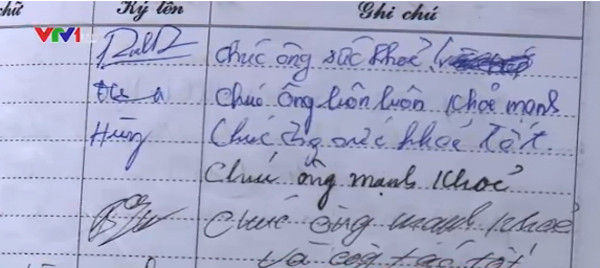 chữ Ký tên Ghi chú
VTV1
Chúc ông sức khoẻ
Chúc ông luôn luôn khoẻ mạnh
Hùng Chúc ông sức khoẻ tốt.
Chúc ông mạnh khoẻ
Chúc ông mạnh khoẻ
và công tác tốt